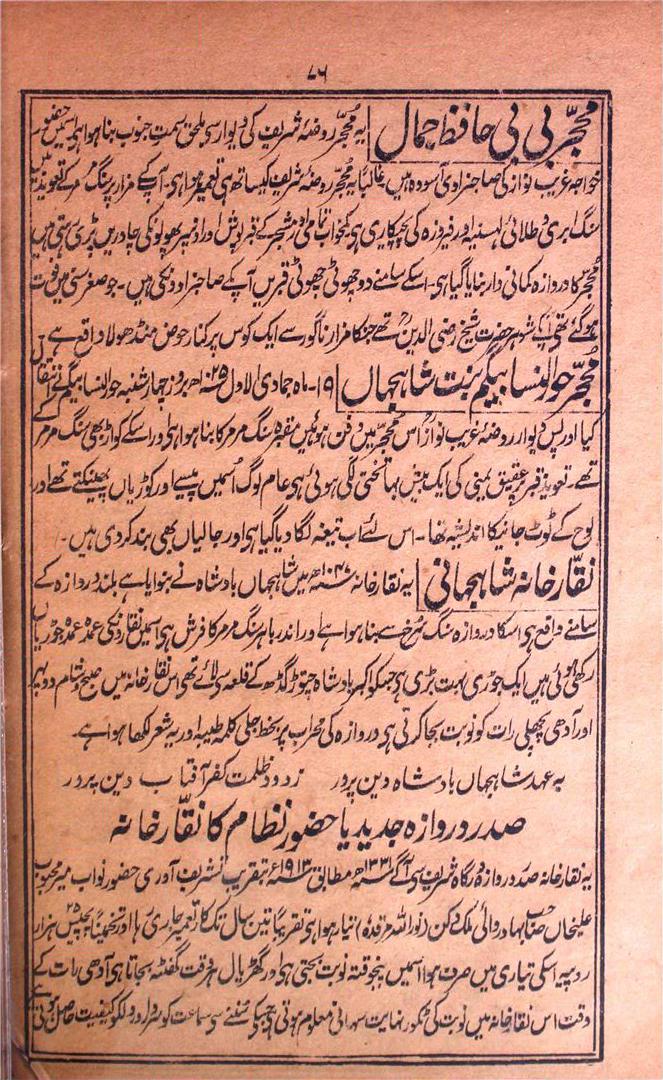 ۷۶
محجّر بی بی حافظ جمال یہ محجّر روضۂ شریف کی دیوار سی ملحق سمت جنوب بنا ہوا ہی اسمیں حضور
خواجہ غریب نواز کی صاحبزادی آسودہ ہیں غالباً یہ محجّر روضۂ شریف کیساتھ ہی تعمیر ہوا ہی۔ آپ کے مزار پر سنگ مرمر کے تعویذ میں
سنگ ابری و طلائی لہسنیہ اور فیروزہ کی پچیکاری ہی کمخواب شامی اور مشجر کے قبر پوش اور انپر پھولونکی چادریں پڑی رہتی ہیں
محجّر کا دروازہ کمانی دار بنایا گیا ہی۔ اسکے سامنے دو چھوٹی چھوٹی قبریں آپ کے صاحبزادونکی ہیں۔ جو صغر سنی میں فوت
ہو گئے تھی آپکے شوہر حضرت شیخ رضی الدین تھے جنکا مزار ناگور سے ایک کوس پر کنار حوض منڈھولا واقع ہے۔
محجّر حور النسا بیگم بنت شاہجہاں ۱۹۔ ماہ جمادی الاول ۱۰۲۵ھ بروز چہار شنبہ حور النسا بیگم نے انتقال
کیا اور پس دیوار روضۂ غریب نواز اس محجّر میں دفن ہوئیں مقبرہ سنگ مرمر کا بنا ہوا ہی اور اسکے کواڑ بھی سنگ مرمر کے
تھے۔ تعویذ قبر پر عقیق یمنی کی ایک بیش بہا تختی لگی ہوئی ہی عام لوگ اُسمیں پیسے اور کوڑیاں پھینکتے تھے اور
لوح کے ٹوٹ جانیکا اندیشہ تھا۔ اس لئے اب تیغہ لگا دیا گیا ہی اور جالیاں بھی بند کر دی ہیں۔
نقّار خانہ شاہجہانی یہ نقار خانہ ۱۰۴۷ھ میں شاہجہاں بادشاہ نے بنوایا ہے بلند دروازہ کے
سامنے واقع ہی اسکا دروازہ سنگ سرخ سے بنا ہوا ہے اور اندر باہر سنگ مرمر کا فرش ہی اسمیں نقارونکی عمدہ عمدہ جوڑیاں
رکھی ہوئی ہیں ایک جوڑی بہت بڑی ہی جسکو اکبر بادشاہ چتوڑ گڈھ کے قلعہ سی لائے تھی اس نقارخانہ میں صبح و شام دوپہر
اور آدھی پچھلی رات کو نوبت بجا کرتی ہی دروازہ کی محراب پر بخط جلی کلمہ طیبہ اور یہ شعر لکھا ہوا ہے۔
بہ عہد شاہجہاں بادشاہ دین پرور زدود ظلمت کفر آفتاب دین پرور
صدر دروازہ جدید یا حضور نظام کا نقّار خانہ
یہ نقار خانہ صدر دروازہ درگاہ شریف سی آگے ۱۳۳۱ھ مطابق ۱۹۱۳ء بتقریب تشریف آوری حضور نواب میر محبوب
علیخاں صاحب بہادر والئی ملک دکن (نور اللہ مرقدہ) تیار ہوا ہی تقریباً تین سال تک کار تعمیر جاری رہا اور تخمیناً پچیس ۲۵ ہزار
روپیہ اسکی تیاری میں صرف ہوا اسمیں پنجوقتہ نوبت بجتی ہی اور گھڑیال ہر وقت گھنٹہ بجاتا ہی آدھی رات کے
وقت اس نقار خانہ میں نوبت کی ٹکور نہایت سہانی معلوم ہوتی ہی جسکے سننے سی سماعت کو سرور اور دلکو کیفیت حاصل ہوتی ہے